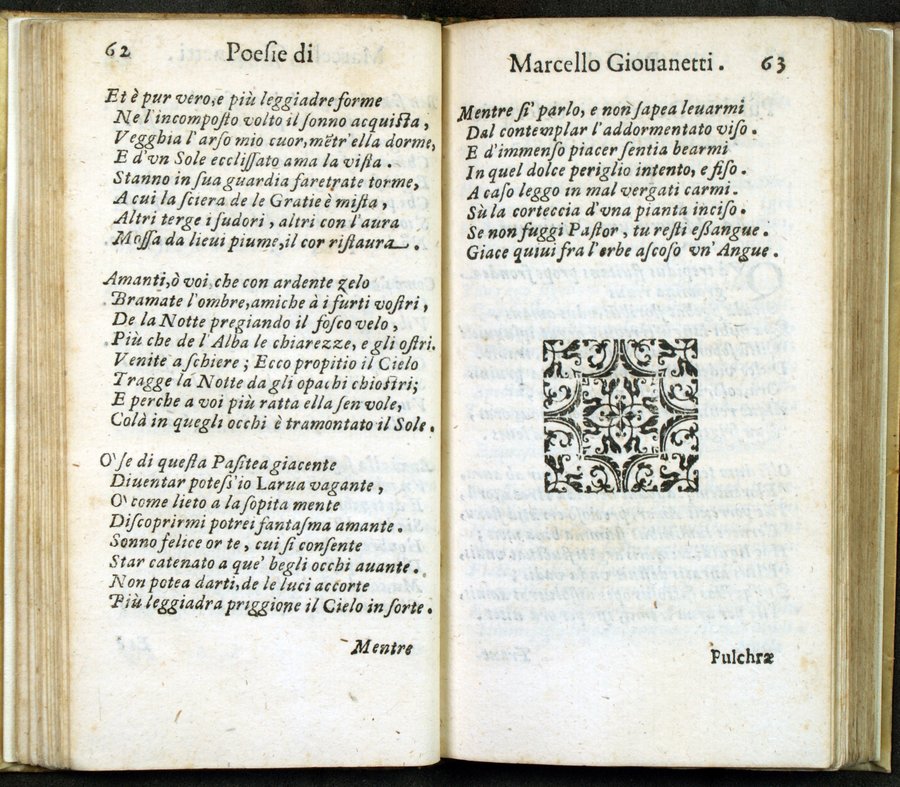 62 Poesie di
Et è pur vero, e più leggiadre forme
Ne l'incomposto volto il sonno acquista,
Vegghia l'arso mio cuor, mẽtr'ella dorme,
E d'vn Sole ecclissato ama la vista.
Stanno in sua guardia faretrate torme,
A cui la sciera de le Gratie è mista,
Altri terge i sudori, altri con l'aura
Mossa da lieui piume, il cor ristaura.
Amanti, ò voi, che con ardente zelo
Bramate l'ombre, amiche à i furti vostri,
De la Notte pregiando il fosco velo,
Più che de l'Alba le chiarezze, e gli ostri.
Venite a schiere; Ecco propitio il Cielo
Tragge la Notte da gli opachi chiostri;
E perche a voi più ratta ella sen vole,
Colà in quegli occhi è tramontato il Sole.
O' se di questa Pasitea giacente
Diuentar potess'io Larua vagante,
O' come lieto a la sopita mente
Discoprirmi potrei fantasma amante.
Sonno felice or te, cui si consente
Star catenato a que' begli occhi auante.
Non potea darti, de le luci accorte
Più leggiadra priggione il Cielo in sorte.
Mentre
Marcello Giouanetti. 63
Mentre sì parlo, e non sapea leuarmi
Dal contemplar l'addormentato viso.
E d'immenso piacer sentia bearmi
In quel dolce periglio intento, e fiso.
A caso leggo in mal vergati carmi.
Sù la corteccia d'vna pianta inciso.
Se non fuggi Pastor, tu resti essangue.
Giace quiui fra l'erbe ascoso vn' Angue.
Pulchræ